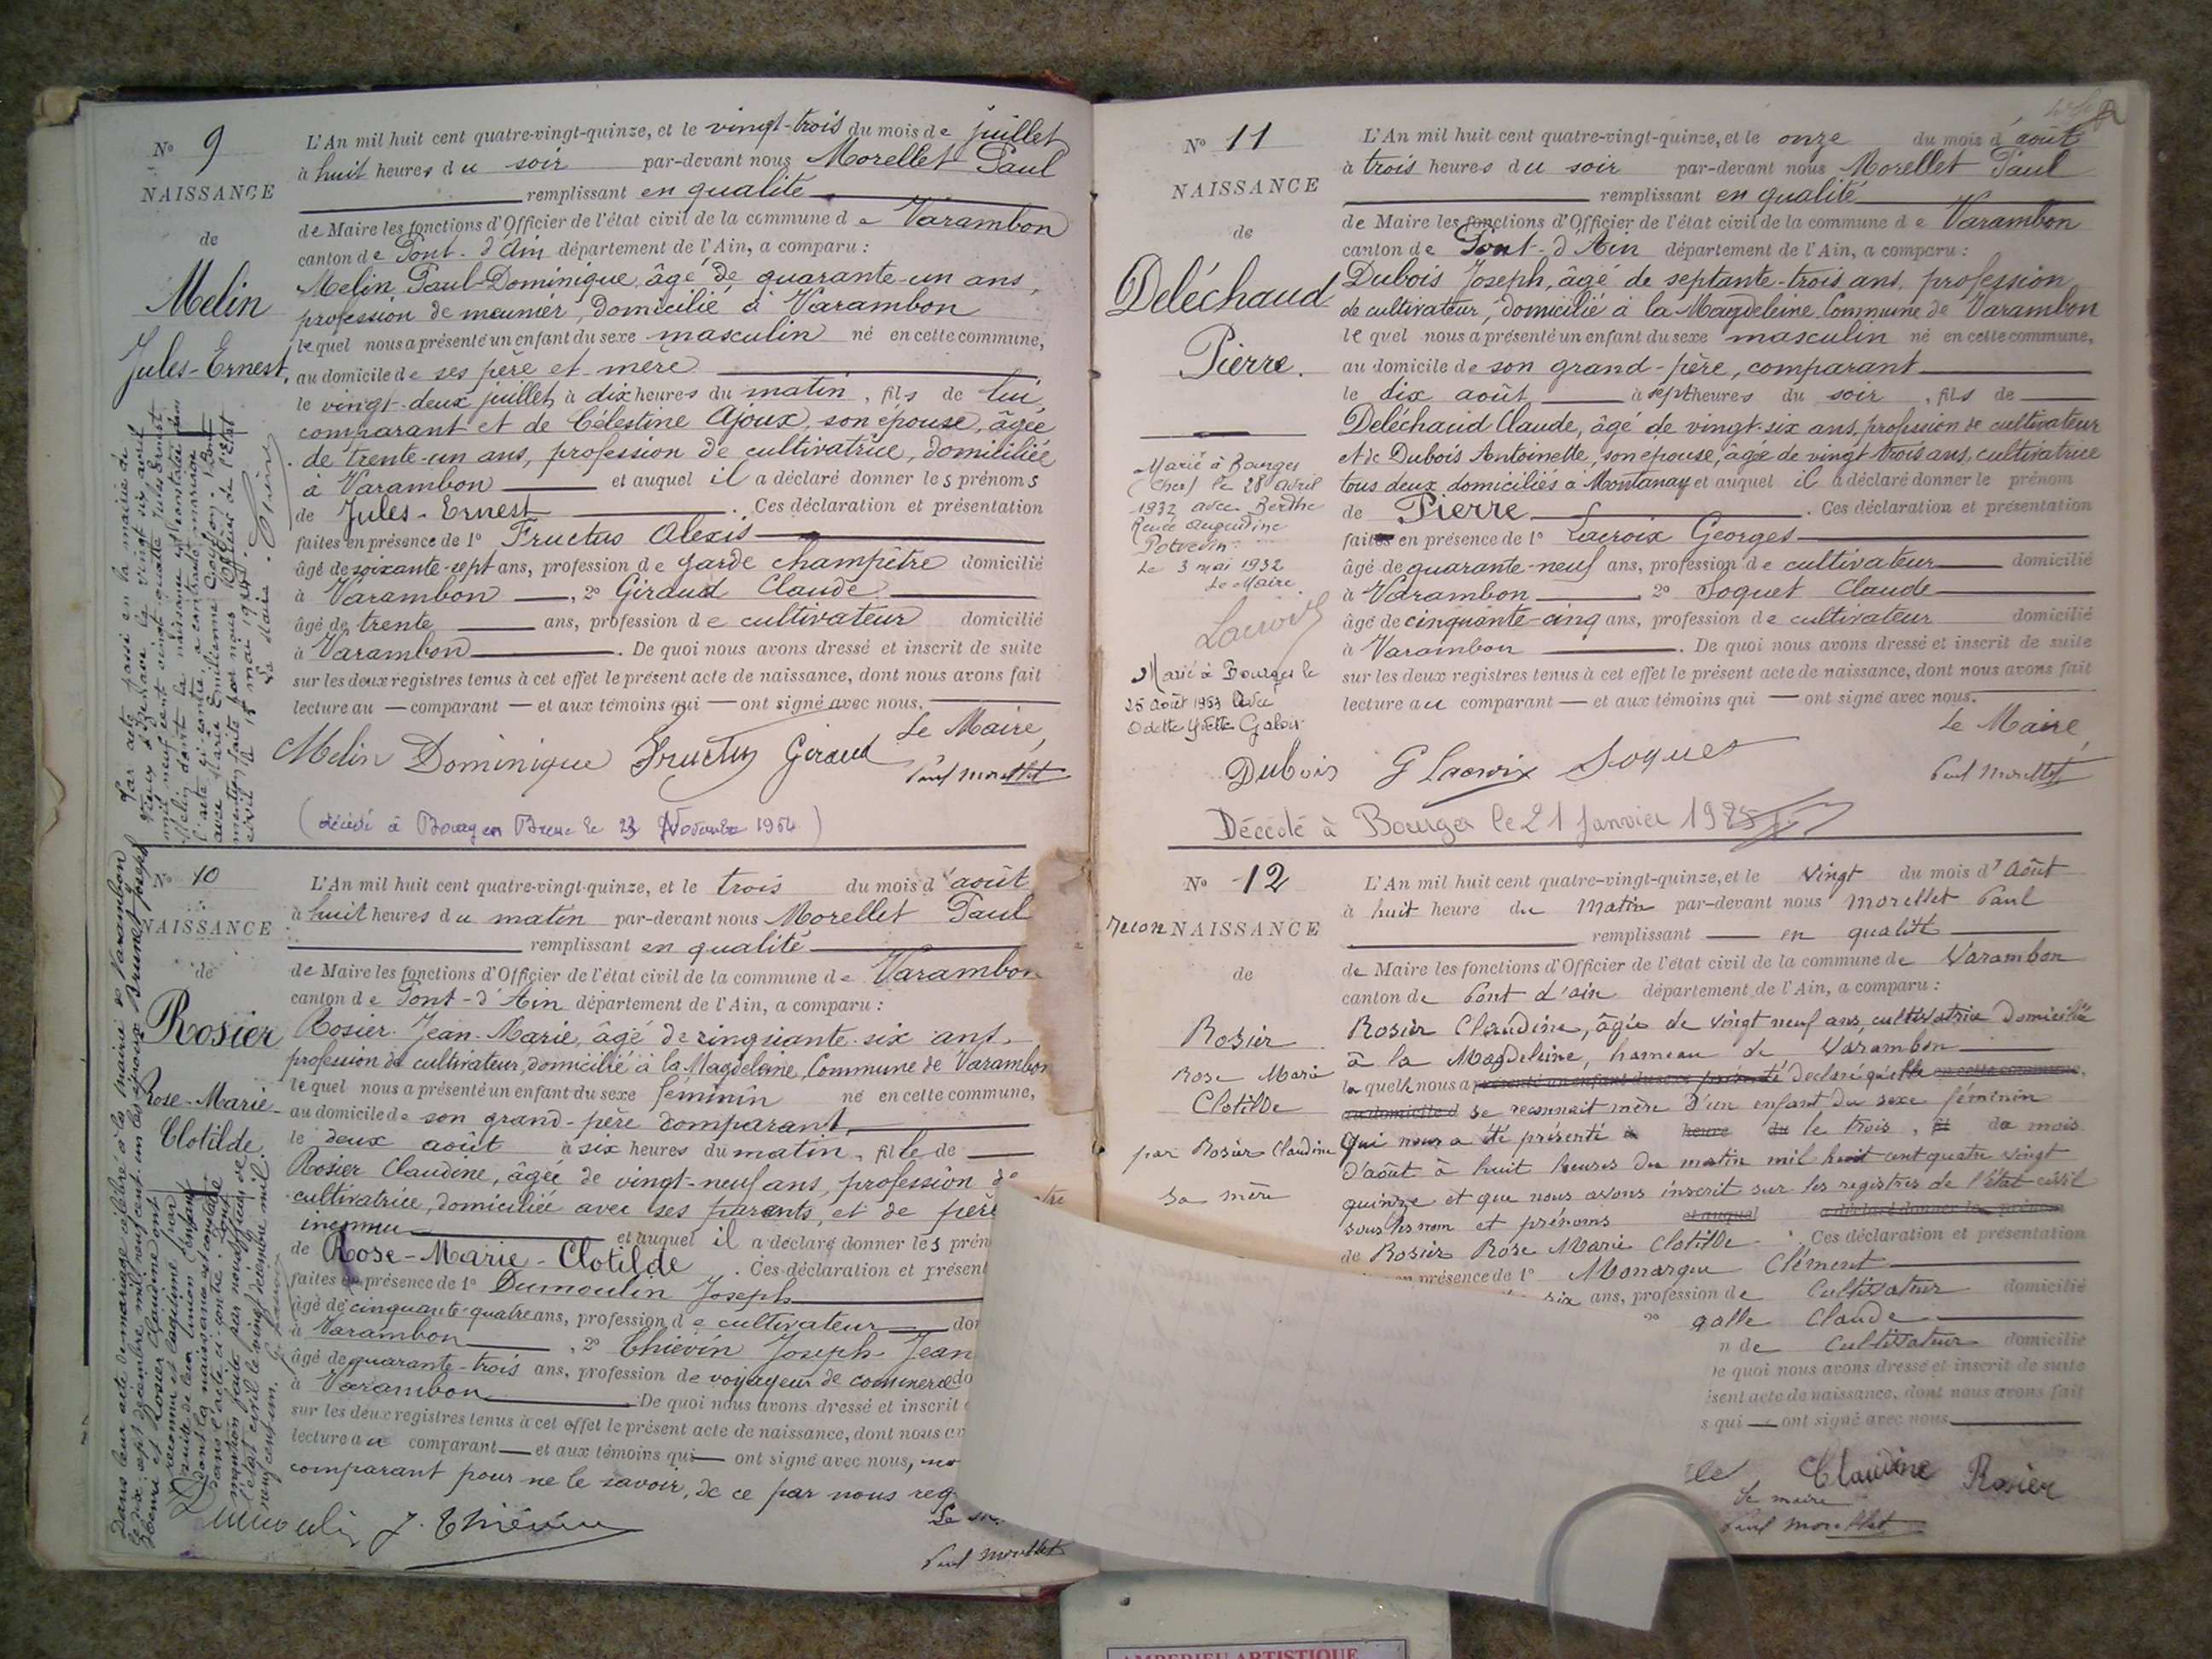 N° 9
NAISSANCE
de
Melin
Jules-Ernest.
L'An mil huit cent quatre-vingt-quinze, et le vingt-trois du mois de juillet
à huit heures du soir par-devant nous Morellet Paul
remplissant en qualité
de Maire les fonctions d'Officier de l'état civil de la commune de Varambon
canton de Pont-d'Ain département de l'Ain, a comparu :
Melin Paul-Dominique, âgé de quarante-un ans,
profession de meunier, domicilié à Varambon
lequel nous a présenté un enfant du sexe masculin né en cette commune,
au domicile de ses père et mère
le vingt-deux juillet à dix heures du matin, fils de lui,
comparant et de Célestine Ajoux, son épouse, âgée
de trente-un ans, profession de cultivatrice, domiciliée
à Varambon et auquel il a déclaré donner les prénoms
de Jules-Ernest . Ces déclaration et présentation
faites en présence de 1° Fructus Alexis
âgé de soixante-sept ans, profession de garde champêtre domicilié
à Varambon , 2° Giraud Claude
âgé de trente ans, profession de cultivateur domicilié
à Varambon . De quoi nous avons dressé et inscrit de suite
sur les deux registres tenus à cet effet le présent acte de naissance, dont nous avons fait
lecture au comparant et aux témoins qui ont signé avec nous.
Le Maire,
Melin Dominique Fructus Giraud
Paul Morellet
(décédé à Bourg en Bresse le 23 Novembre 1954)
N° 10
NAISSANCE
de
Rosier
Rose-Marie-
Clotilde.
L'An mil huit cent quatre-vingt-quinze, et le trois du mois d'août
à huit heures du matin par-devant nous Morellet Paul
remplissant en qualité
de Maire les fonctions d'Officier de l'état civil de la commune de Varambon
canton de Pont-d'Ain département de l'Ain, a comparu :
Rosier Jean-Marie, âgé de cinquante-six ans,
profession de cultivateur, domicilié à la Magdeleine, Commune de Varambon
lequel nous a présenté un enfant du sexe féminin né en cette commune,
au domicile de son grand-père comparant,
le deux août à six heures du matin, fille de
Rosier Claudine, âgée de vingt-neuf ans, profession de
cultivatrice, domiciliée avec ses parents, et de père
inconnu et auquel il a déclaré donner les prén
de Rose-Marie-Clotilde . Ces déclaration et présent
faites en présence de 1° Dumoulin Joseph
âgé de cinquante-quatre ans, profession de cultivateur do
à Varambon , 2° Thiévin Joseph Jean
âgé de quarante-trois ans, profession de voyageur de commerce do
à Varambon De quoi nous avons dressé et inscrit
sur les deux registres tenus à cet effet le présent acte de naissance, dont nous
lecture au comparant et aux témoins qui ont signé avec nous,
comparant pour ne le savoir, de ce par nous req
Dumoulin J. Thiévin
Paul Morellet
Dans leur acte de mariage célébré à la mairie de Varambon
le dix-sept décembre mil neuf cent un les époux Brunet Joseph
Henri et Rosier Claudine ont
reconnu et légitimé par
suite de leur union l'enfant
dont la naissance est constatée
dans l'acte ci-contre. Dont
mention faite par nous officier de
l'état civil le vingt décembre mil
neuf cent un.
N° 11
NAISSANCE
de
Deléchaud
Pierre.
Marié à Bourges
(Cher) le 28 avril
1932 avec Berthe
Renée Augustine
Potvevin
Le 3 mai 1932
Le Maire.
Lacroix
Marié à Bourges le
Odette Yvette
L'An mil huit cent quatre-vingt-quinze, et le onze du mois d'août
à trois heures du soir par-devant nous Morellet Paul
remplissant en qualité
de Maire les fonctions d'Officier de l'état civil de la commune de Varambon
canton de Pont-d'Ain département de l'Ain, a comparu :
Dubois Joseph, âgé de septante-trois ans, profession
de cultivateur, domicilié à la Magdeleine Commune de Varambon
lequel nous a présenté un enfant du sexe masculin né en cette commune,
au domicile de son grand-père, comparant
le dix août à sept heures du soir, fils de
Deléchaud Claude, âgé de vingt-six ans, profession de cultivateur
et de Dubois Antoinette, son épouse, âgée de vingt-trois ans, cultivatrice
tous deux domiciliés à Montanay et auquel il a déclaré donner le prénom
de Pierre . Ces déclaration et présentation
faites en présence de 1° Lacroix Georges
âgé de quarante-neuf ans, profession de cultivateur domicilié
à Varambon 2° Soquet Claude
âgé de cinquante-cinq ans, profession de cultivateur domicilié
à Varambon . De quoi nous avons dressé et inscrit de suite
sur les deux registres tenus à cet effet le présent acte de naissance, dont nous avons fait
lecture au comparant et aux témoins qui ont signé avec nous.
Le Maire,
Dubois G Lacroix Soquet
Paul Morellet
Décédé à Bourges le 21 Janvier
N° 12
reconNAISSANCE
de
Rosier
Rose Marie
Clotilde
par Rosier Claudine
sa mère
L'An mil huit cent quatre-vingt-quinze, et le vingt du mois d'Août
à huit heure du matin par-devant nous Morellet Paul
remplissant en qualité
de Maire les fonctions d'Officier de l'état civil de la commune de Varambon
canton de Pont d'ain département de l'Ain, a comparu :
Rosier Claudine, âgée de vingt neuf ans, cultivatrice domiciliée
à la Magdeleine, hameau de Varambon
laquelle nous a présenté un enfant du sexe déclaré qu'elle en cette commune,
au domicile d se reconnait mère d'un enfant du sexe féminin
qui nous a été présenté à heure du le trois, du mois
d'août à huit heures du matin mil huit cent quatre vingt
quinze et que nous avons inscrit sur les registres de l'état civil
sous les nom et prénoms et auquel a déclaré donner les prénoms
de Rosier Rose Marie Clotilde . Ces déclaration et présentation
en présence de 1° Monarque Clément
six ans, profession de Cultivateur domicilié
2° galle Claude
n de Cultivateur domicilié
De quoi nous avons dressé et inscrit de suite
ésent acte de naissance, dont nous avons fait
s qui ont signé avec nous
Claudine Rosier
Le maire
Paul Morellet
AMBERIEU ARTISTIQUE